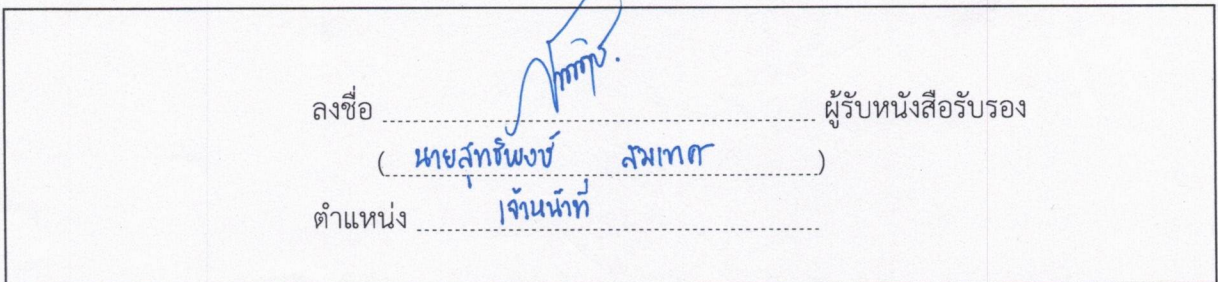 ลงชื่อ ผู้รับหนังสือรับรอง
( นายสุทธิพงษ์ สมเทศ )
ตำแหน่ง เจ้าหน้าที่